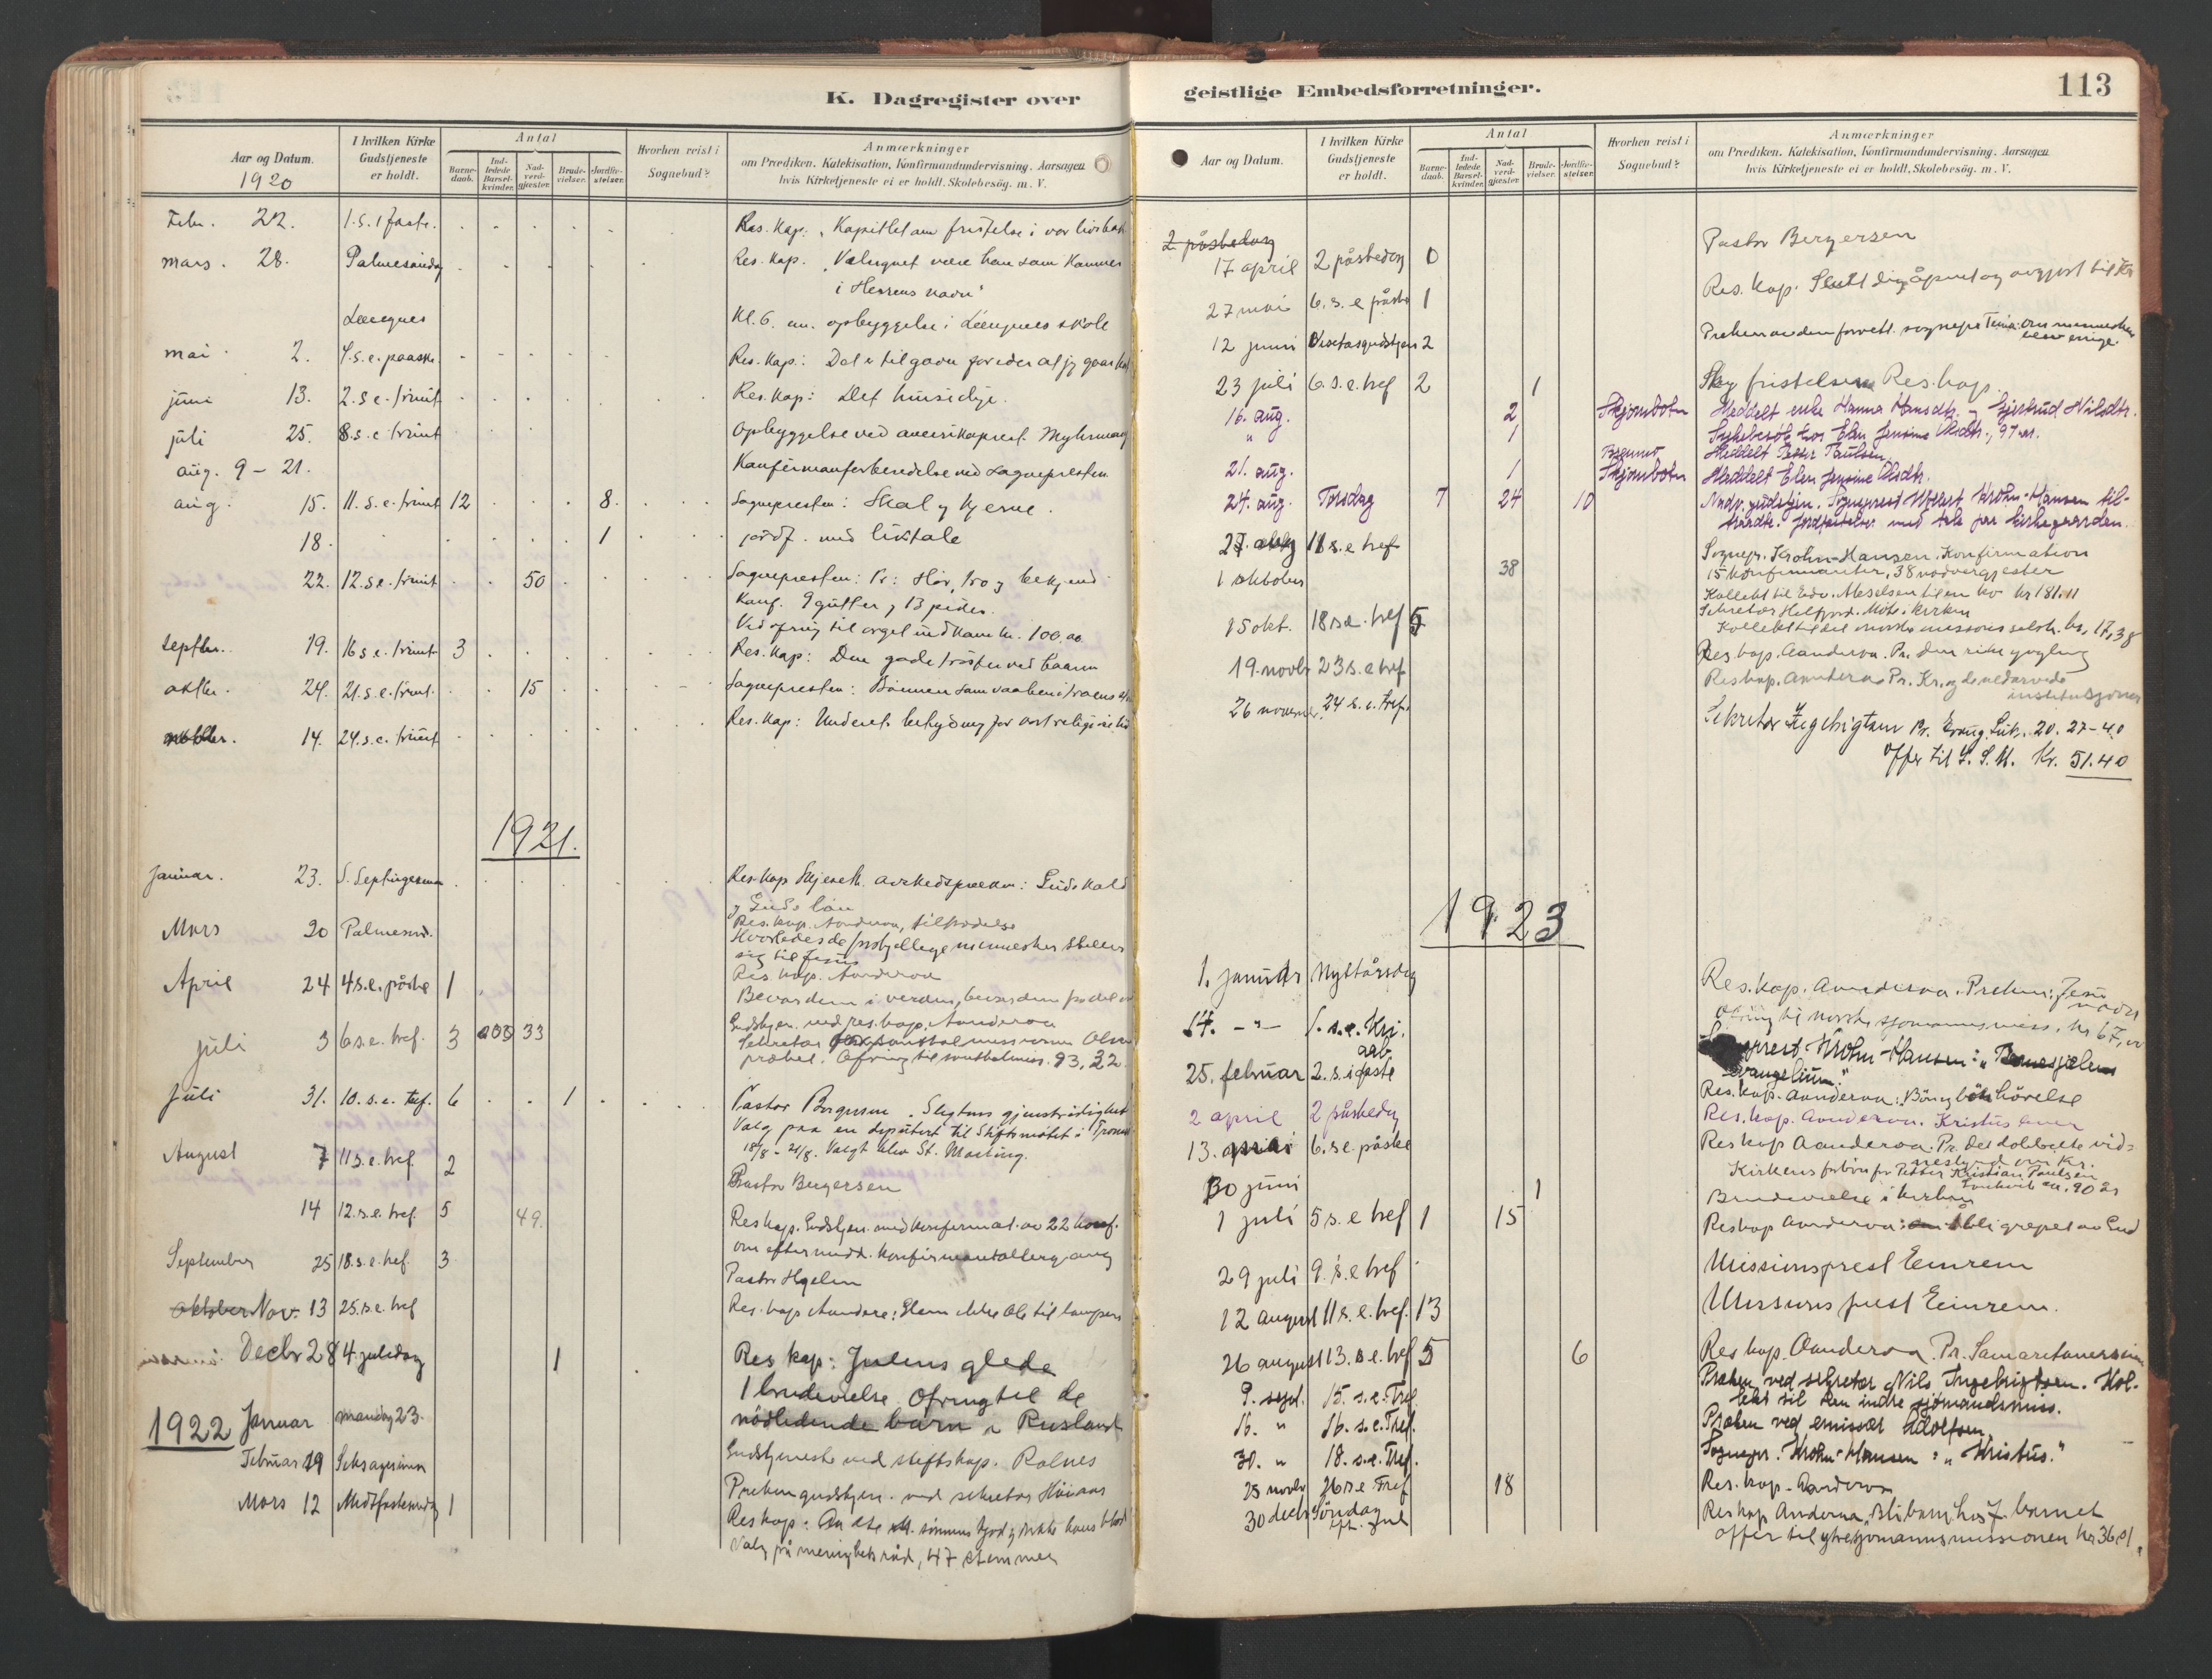 K. Dagregister over
Aar og Datum.
I hvilken Kirke Gudstjeneste er holdt.
Antal
Barne-daab.
Ind-ledede Barsel-kvinder.
Nad-verd-gjæster.
Brude-vielser.
Jordfæ-stelser.
Hvorhen reist i Sognebud?
Anmærkninger
om Prædiken. Katekisation, Konfirmandundervisning. Aarsagen
hvis Kirketjeneste ei er holdt. Skolebesög. m. V.
1920
Febr. 22. 1. s. i faste. Res. Kap: "Kapitlet om fristelse i vor
mars. 28. Palmesøndag Res. Kap. "Velsignet være han som kommer
i Herrens navn"
Kl. 6. em. opbyggelse i skole
mai 2. 4. s. e. paaske Res. Kap.: Det er til gavn for eder at jeg gaar
juni 13. 2. s. e. trinit. Res. Kap: Det
juli 25. 8. s. e. trinit Opbyggelse ved amerikaprest Myhrmag
aug. 9 - 21. Konfirmanforberedelse ved sognepresten
aug. 15. 11. s. e. trinit 12 8. Sognepresten: Skal og kjerne.
18. 1 jordf. med liktale
22. 12. s. e. trinit 50 Sognepresten: Pr: Hør, tro og bekjend
Konf. 9 gutter, 13 piker.
Ved ofring til orgel indkom kr. 100.00
septbr. 19. 16 s. e. trinit 3 Res. Kap: Den gode
oktbr. 24. 21. s. e. trinit. 15 Sognepresten: Bønnen som vaaben i troens
14. 24. s. e. trinit Res. Kap: Underets betydning for vort religiøse liv
1921.
Januar. 23. S. Septuagesima Res. Kap avskedspræken: Guds kald
og Guds løn
Mars 20 Palmesønd. Res. kap. Aanderaa, tiltrædelse
Hvorledes de forskjellige mennesker stiller
sig til Jesus
April 24 4 s. e. påske 1 Res. kap. Aanderaa
Bevar dem i verden, bevar dem fra det
juli 3 6 s. e. tref. 3 33 Gudstjen. ved res. kap. Aanderaa
Sekretær
præket. Ofring til 93,32
Juli 31. 10. s. e. tref. 6 1 Pastor Bergersen. Slegtens gjenstridighet
Valg paa en deputert til Stiftsmøtet i Tromsø
18/8 - 21/8. Valgt blev St.
August 7 11 s. e. tref. 2 Pastor Bergersen
14 12. s. e. tref. 5 49. Res kap. Gudstjen. med konfirmat. av 22 konf.
om eftermidd. konfirmantaltergang
September 25 18. s. e. tref. 3 Pastor
Oktober Nov. 13 25. s. e. tref Res. kap Aandera: Glem ikke olje til lampen
Decbr 28 4 juledag 1 Res kap: Julens glede
1 brudevielse. Ofring til de
nödledende barn i Rusland
1922 Januar mandag 23. Gudstjeneste ved stiftskap. Rolnes
Februar 19 Seksagesima Preken gudstjen. ved sekretær
Mars 12 Midtfastesøndag 1 Res kap:
Valg på menighetsråd, 47 stemmer
geistlige Embedsforretninger.
113
Aar og Datum.
I hvilken Kirke Gudstjeneste er holdt.
Antal
Barne-daab.
Ind-ledede Barsel-kvinder.
Nad-verd-gjæster.
Brude-vielser.
Jordfæ-stelser.
Hvorhen reist i Sognebud?
Anmærkninger
om Prædiken. Katekisation, Konfirmandundervisning. Aarsagen
hvis Kirketjeneste ei er holdt. Skolebesög. m. V.
2 påskedag
17 april 2 påskedag 0 Pastor Bergersen
27 mai 6. s. e påske 1 Res. Kap.
12 juni 2
23 juli 6. s. e. tref 2 1 Sky fristelsen Res. kap.
16. aug. 2 Skjombotn Meddelt enke Hanna Hansdtr. og Gjertrud Nilsdtr.
" 1 Sykebesök hos Elen Jensine Olsdtr., 97 aar.
Meddelt Peder Paulsen
21. aug. 1 Skjombotn Meddelt Elen Jensine Olsdtr.
24. aug. Torsdag 7 24 10 Nadv. gudstjen. Sogneprest Krohn-Hansen til-
trædte. Jordfæstelse med tale paa kirkegaarden.
27. aug 11 s. e tref
1 oktober 38 Sognepr. Krohn-Hansen. Konfirmation
15 konfirmanter, 38 nadvergjester
Kollekt til kr 181.11
15 okt. 18 s. e. tref 5 Sekretær Helfjord. Møte i kirken
Kollekt til det norske missions selsk. kr. 17,38
19. novbr 23 s. e tref Res kap. Aanderaa. Pr. Den rike yngling
26 november 24 s. e. tref. Res kap. Aanderaa Pr. Kr. og de nedarvede
institusjoner
Sekretær Ingebrigtsen Pr. Evang. Luk. 20. 27-40
Offer til Kr. 51.40
1923
1. januar Nyttårsdag Res. kap. Aanderaa. Preken: Jesu
navn
Ofring til norske sjømannsmiss. kr 67,
14. -"- 1. s. e. Kri. aab. Sogneprest Krohn-Hansen: "Barnesjælens
evangelium."
25. februar 2. s. i faste Res. kap. Aanderaa: Bön og bönhörelse
2 april 2 påskedag Res. kap. Aanderaa. Kristus
13. mai 6. s. e. påske Res kap Aanderaa. Pr. Det dobbelte vid-
nesbyrd om Kr.
Kirkens forbön for Petter Kristian Paulsen
30 juni 1 Brudevielse i kirken
1 juli 5 s. e tref 1 15 Res kap Aanderaa: bli grepet av Gud
29 juli 9. s. e tref Missionsprest Einrem
12 august 11 s. e. tref. 13 Missionsprest Einrem.
26 august 13. s. e. tref 5 6 Res kap. Aanderaa. Pr. Samaritanersinn
9. sept. 15. s. e. Tref. Præken ved sekretær Nils Ingebrigtsen. Kol-
lekt til den indre sjömandsmiss.
16. " 16. s. e. Tref. Præken ved emissær Adolfsen.
30. " 18. s. e. Tref. Sognepr. Krohn-Hansen: "Kristus."
25 novbr 26 s e Tref 18 Res. kap. Aanderaa
30 decbr Söndag eft. jul Res kap Anderaa
Offer til sjømannsmissionen kr 36,01.